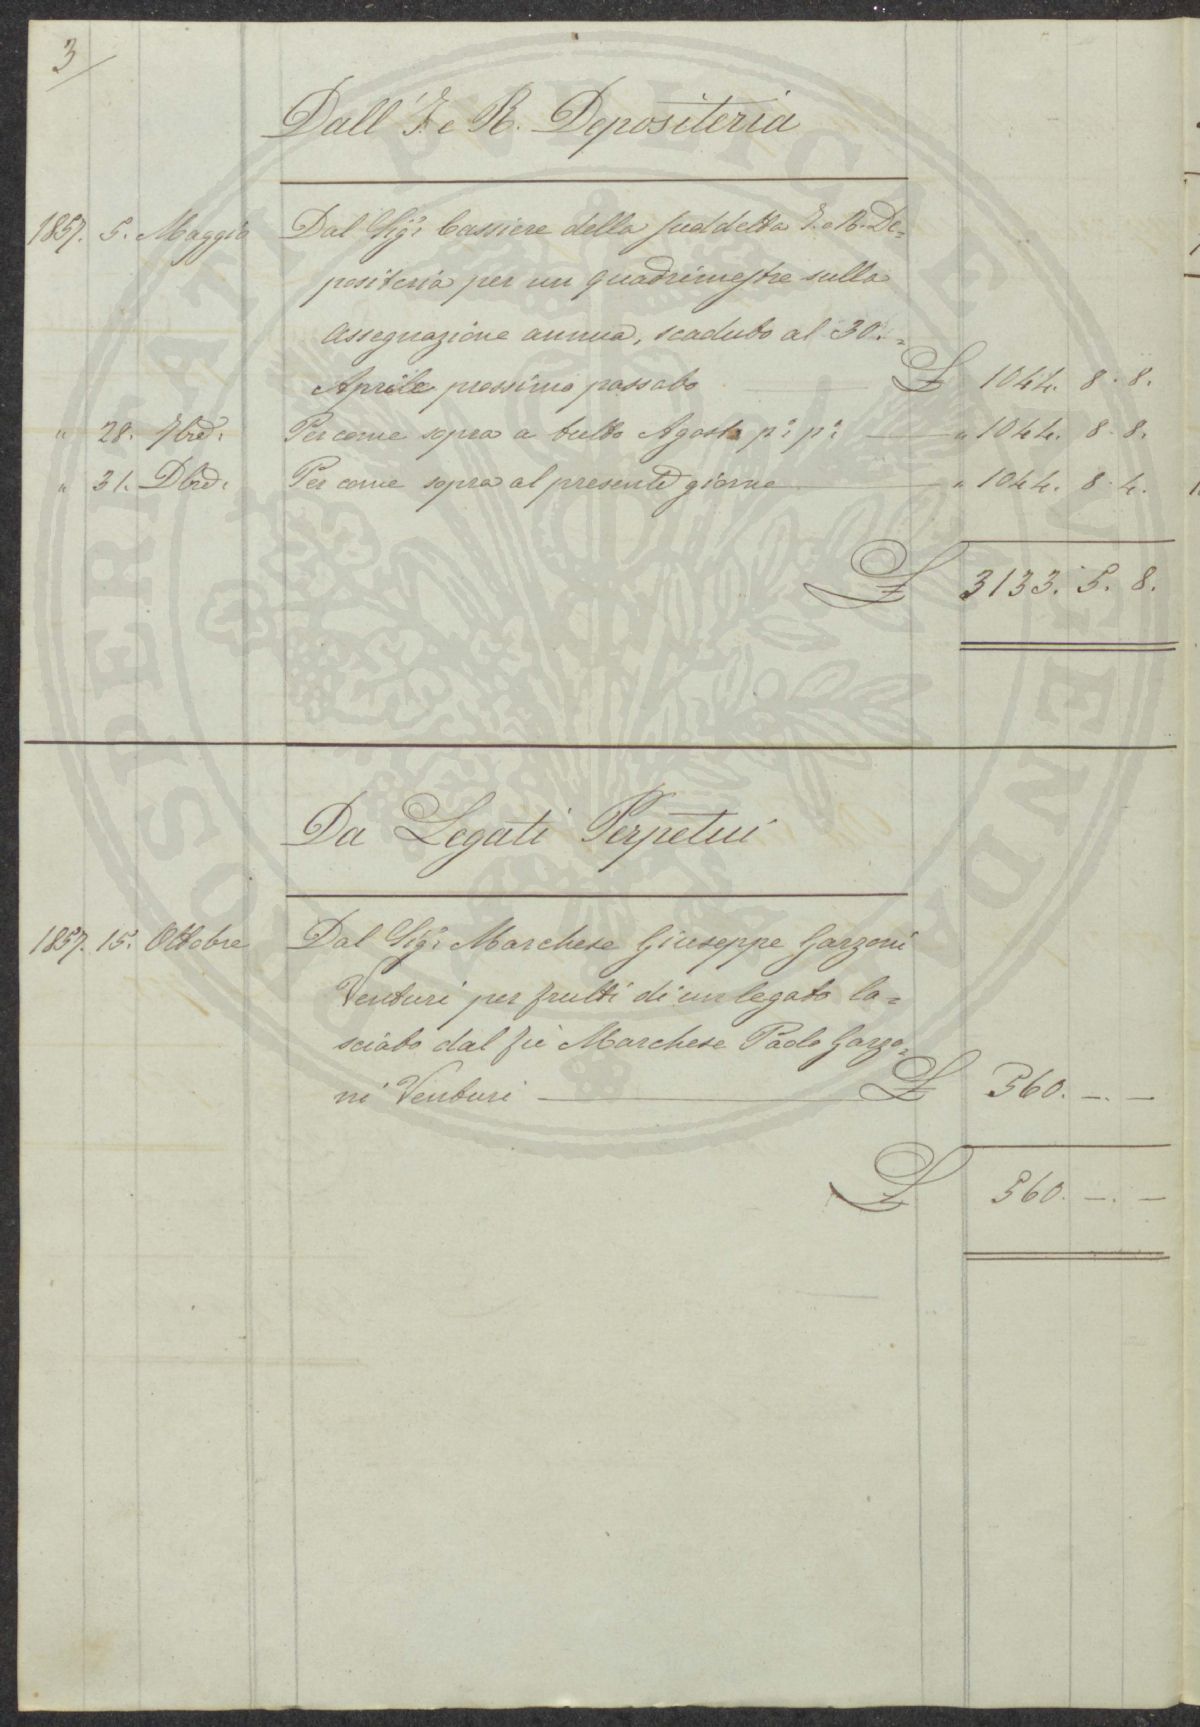 3
Dall' I. e R. Depositeria
1857. 5. Maggio Dal Sig.r Cassiere della suddetta I. e R. De=
positeria per un quadrimestre sulla
assegnazione annua, scaduto al 30.=
Aprile prossimo passato £ 1044. 8. 8.
" 28. 7bre. Per come sopra a tutto Agosto p.o p.o " 1044. 8. 8.
" 31. Dbre. Per come sopra al presente giorno " 1044. 8. 4.
£ 3133. 5. 8.
Da Legati Perpetui
1857. 15. Ottobre Dal Sig.r Marchese Giuseppe Garzoni
Venturi per frutti di un legato la=
sciato dal fù Marchese Paolo Garzo=
ni Venturi £ 560. —. —
£ 560. —. —
PROSPERITATI PVBLICAE AVGENDAE